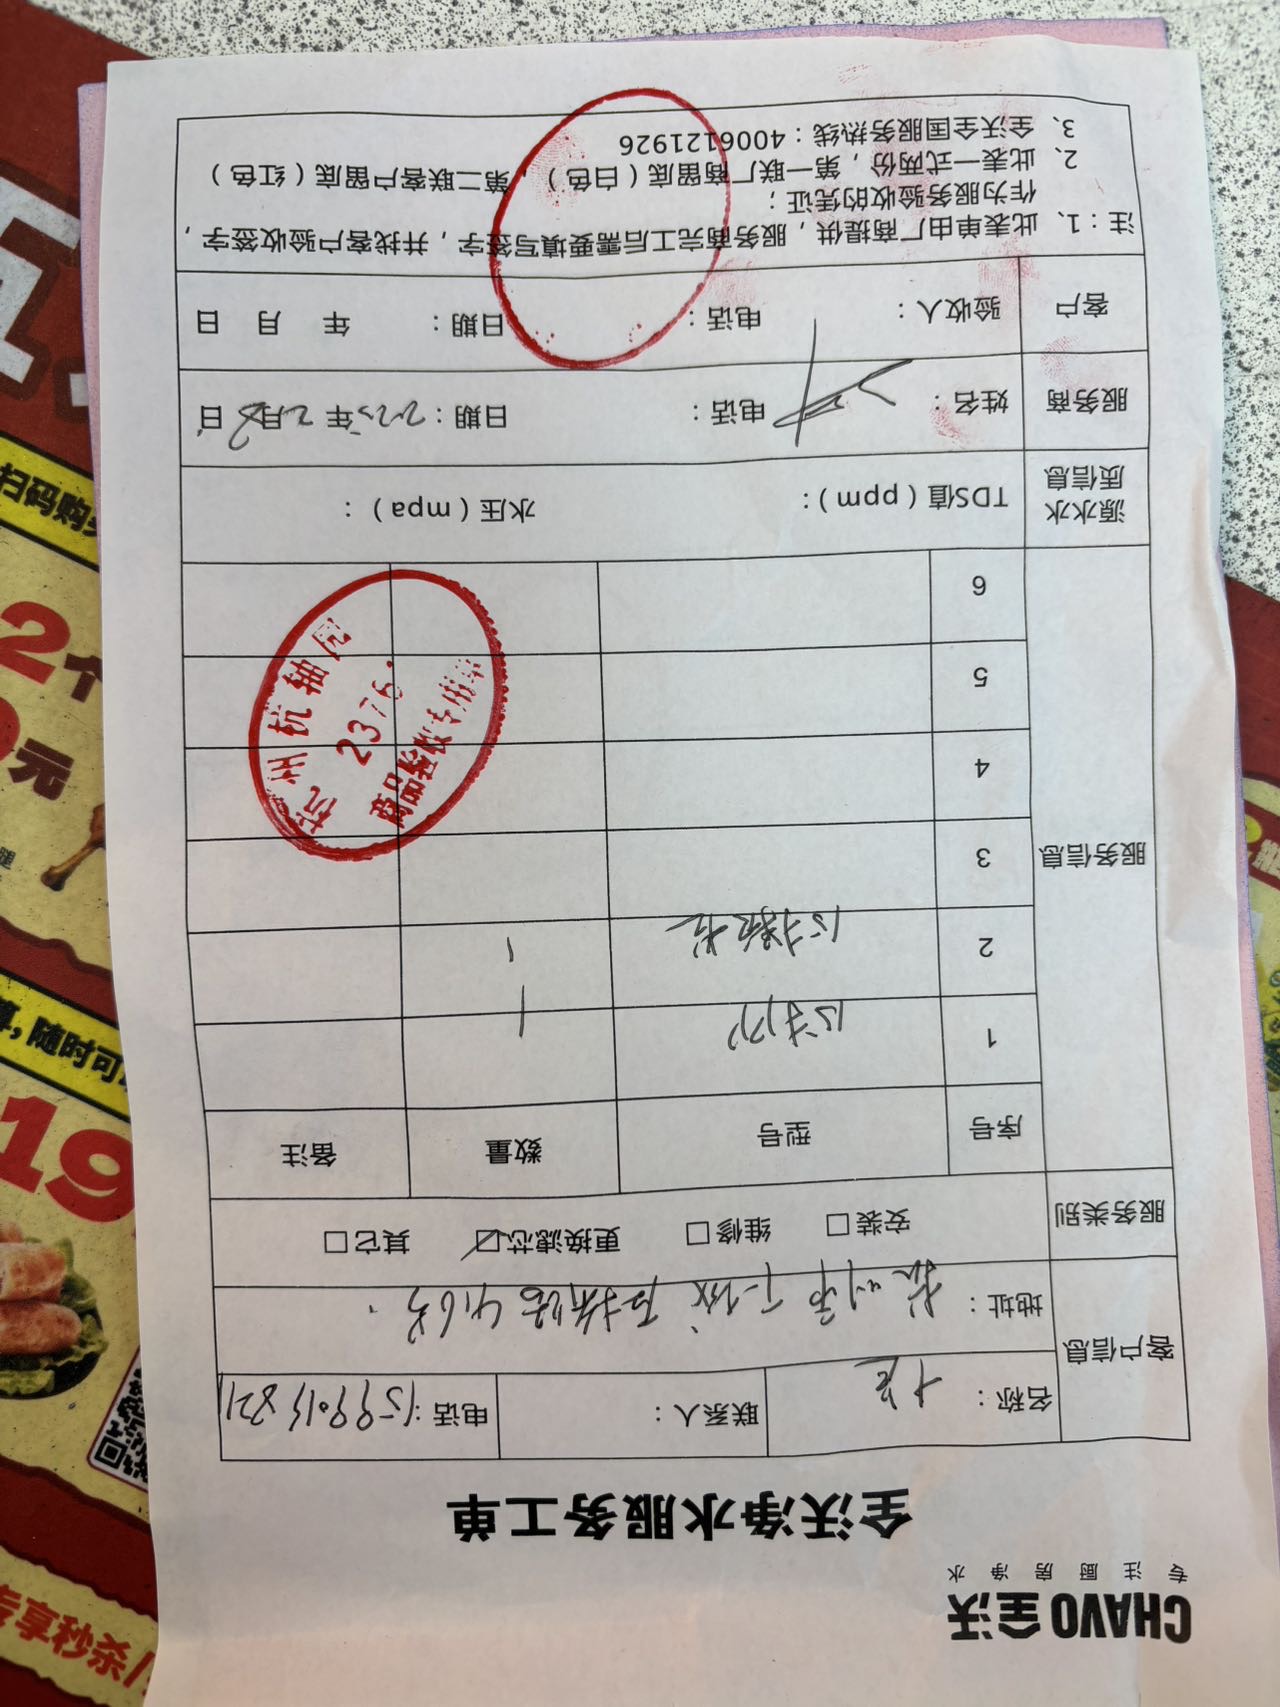 CHAVO 全沃
专注厨房净水
全沃净水服务工单
客户信息 名称： 联系人： 电话：
地址：杭州市下城 石桥路416号
服务类别 安装□ 维修□ 更换滤芯☑ 其它□
服务信息 序号 型号 数量 备注
1 1
2 1
3
4
5
6
杭州杭轴店
2376
商品验收专用章
源水水质信息 TDS值（ppm）： 水压（mpa）：
服务商 姓名： 电话： 日期：2025年2月8日
客户 验收人： 电话： 日期： 年 月 日
注：1、此表单由厂商提供，服务商完工后需要填写签字，并找客户验收签字，
作为服务验收的凭证；
2、此表一式两份，第一联厂商留底（白色），第二联客户留底（红色）
3、全沃全国服务热线：4006121926
扫码购
2个
元
腿
算，随时可
19
专享秒杀